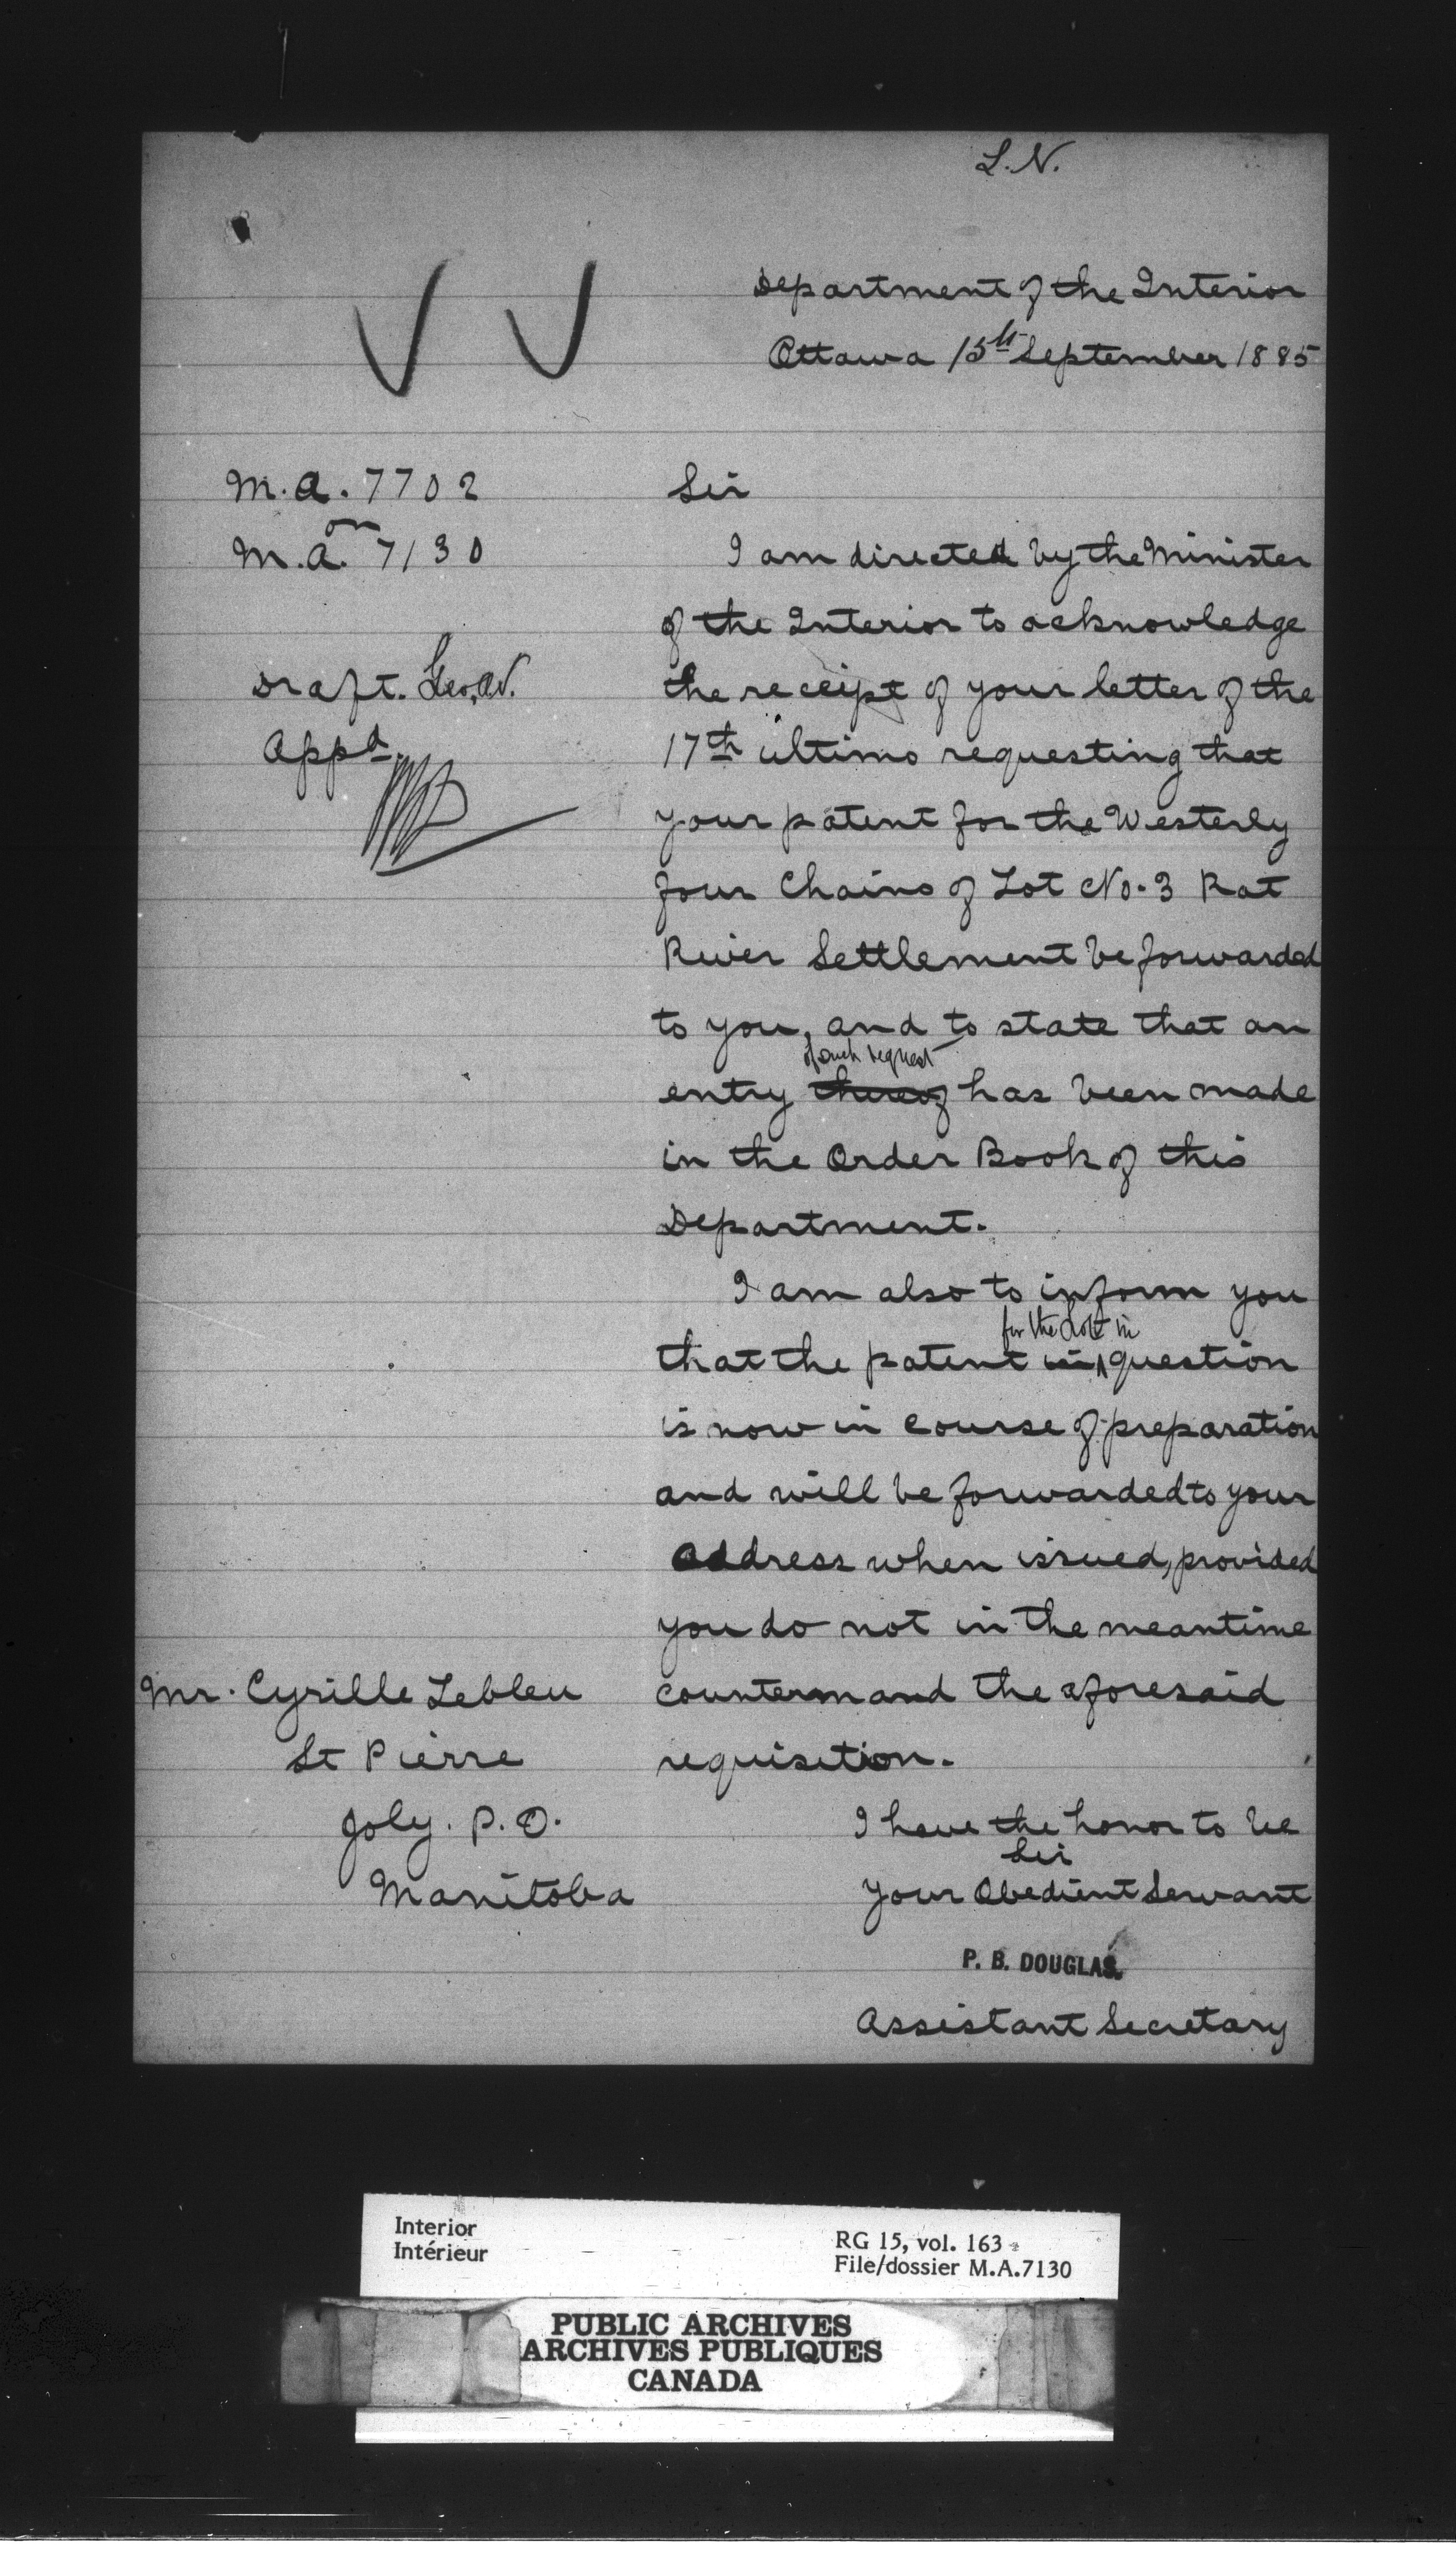 L.N.
Department of the Interior
Ottawa 15th September 1885
M.A. 7702
on
M.A. 7130
Draft. Geo.W.
Appd.
Sir
I am directed by the Minister
of the Interior to acknowledge
the receipt of your letter of the
17th ultimo requesting that
your patent for the Westerly
four Chains of Lot No. 3 Rat
River Settlement be forwarded
to you, and to state that an
of such request
entry thereof has been made
in the Order Book of this
Department.
I am also to inform you
for the Lot in
that the patent in question
is now in course of preparation
and will be forwarded to your
address when issued, provided
you do not in the meantime
countermand the aforesaid
requisition.
Mr. Cyrille Lebleu
St Pierre
Joly. P.O.
Manitoba
I have the honor to be
Sir
Your Obedient Servant
P. B. DOUGLAS.
Assistant Secretary
Interior
Intérieur
RG 15, vol. 163
File/dossier M.A.7130
PUBLIC ARCHIVES
ARCHIVES PUBLIQUES
CANADA